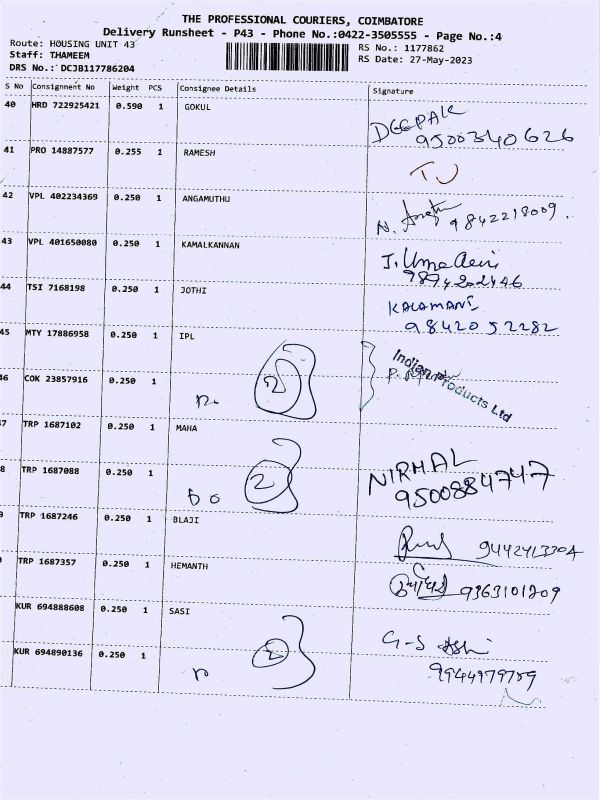 THE PROFESSIONAL COURIERS, COIMBATORE
Delivery Runsheet - P43 - Phone No.:0422-3505555 - Page No.:4
Route: HOUSING UNIT 43
RS No.: 1177862
Staff: THAMEEM
RS Date: 27-May-2023
DRS No.: DCJB117786204
S No Consignment No Weight PCS Consignee Details Signature
40 HRD 722925421 0.590 1 GOKUL DEEPAK
9500340626
41 PRO 14887577 0.255 1 RAMESH
42 VPL 402234369 0.250 1 ANGAMUTHU
N. 9842218009.
43 VPL 401650080 0.250 1 KAMALKANNAN J. Uma Devi
9894202446
44 TSI 7168198 0.250 1 JOTHI KALAMANI
9842052282
45 MTY 17886958 0.250 1 IPL Indian Products Ltd
46 COK 23857916 0.250 1 2
7 TRP 1687102 0.250 1 MAHA NIRMAL
8 TRP 1687088 0.250 1 Do 2 9500884747
9 TRP 1687246 0.250 1 BLAJI 9442413304
TRP 1687357 0.250 1 HEMANTH 9363101209
KUR 694888608 0.250 1 SASI G-S
KUR 694890136 0.250 1 2 9944979789